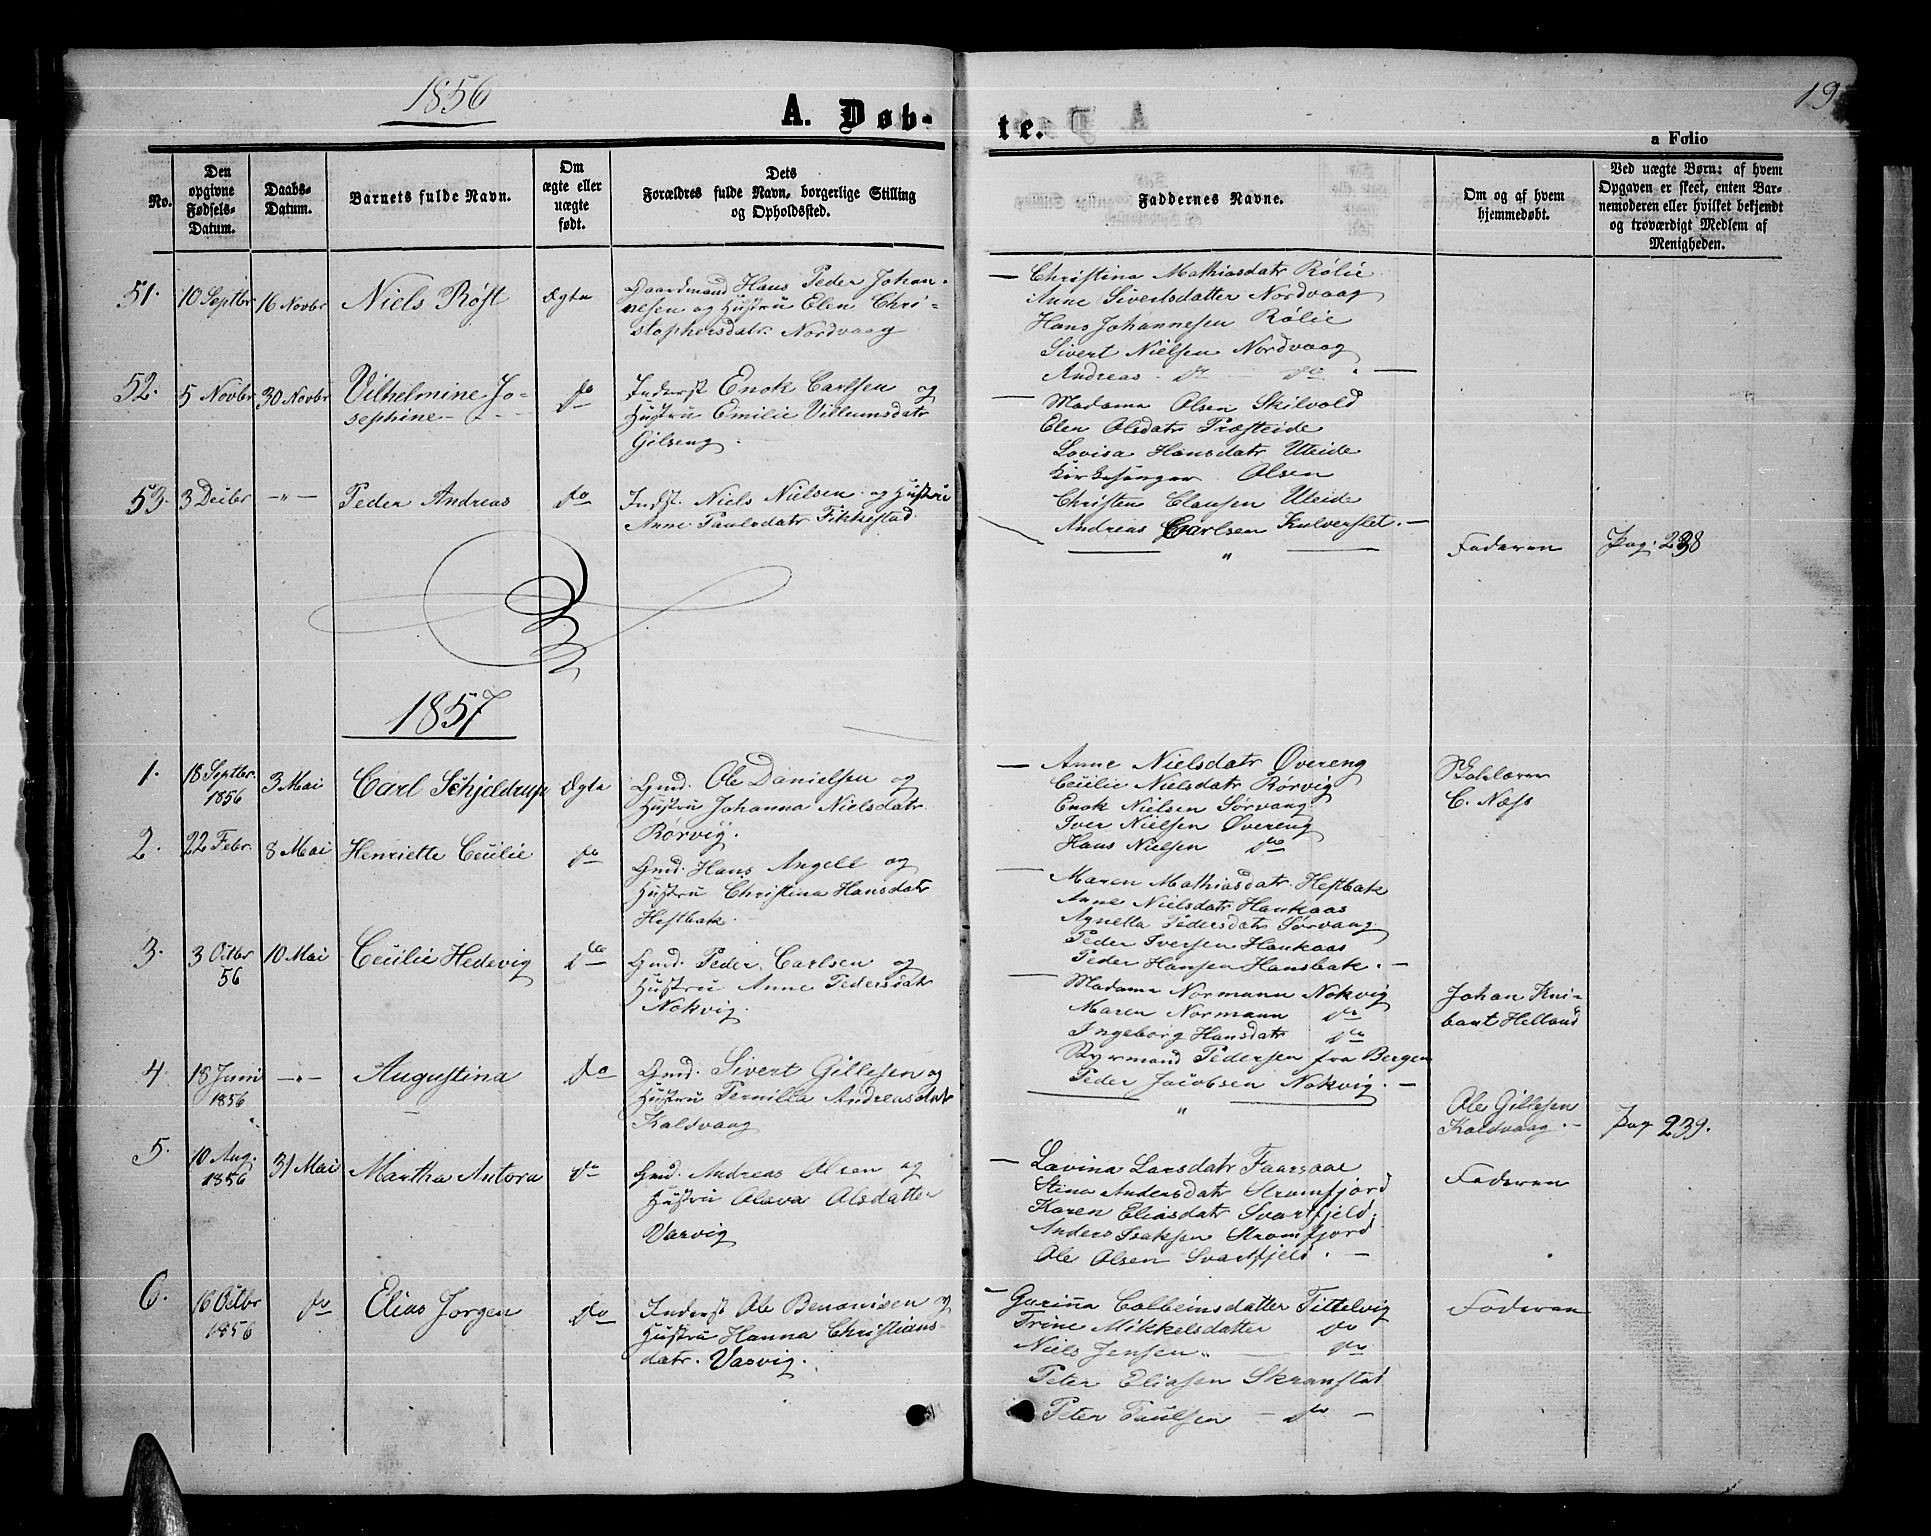 1856
A. Døb-
No.
Den opgivne Fødsels-Datum.
Daabs-Datum.
Barnets fulde Navn.
Om ægte eller uægte født.
Dets
Forældres fulde Navn, borgerlige Stilling
og Opholdssted.
51. 10 Septbr 16 Novbr Niels Røst Ægte Gaardmand Hans Peder Johan-
nesen og Hustru Elen Chri-
stophersdatr. Nordvaag
52. 5 Novbr 30 Novbr Vilhelmine Jo- do Inderst Enok Carlsen og
sephine Hustru Emilie Villumsdatr
Gilseng.
53. 3 Decbr -"- Peder Andreas do Indst. Niels Nielsen og Hustru
Anne Paulsdatr Fikkestad.
1857
1. 18 Septbr. 3 Mai Carl Schjeldrup Ægte Gmd. Ole Danielsen og
1856 Hustru Johanna Nielsdatr
Rørvig.
2. 22 Febr 8 Mai Henriette Cecilie do Gmd. Hans Angell og
Hustru Christina Hansdatr
Hestbak.
3. 3 Octbr 10 Mai Cecilie Hedevig do Gmd. Peder Carlsen og
56 Hustru Anne Pedersdatr
Nokvig.
4. 18 Juni -"- Augustina do Gmd. Sivert Gillesen og
1856 Hustru Pernilla Andreasdatr
Kaldvaag
5. 10 Aug. 31 Mai Martha Antora do Gmd. Andreas Olsen og
1856 Hustru Olava Olsdatter
Varvig
6. 16 Octbr do Elias Jørgen do Inderst Ole Benonisen og
1856 Hustru Hanna Christians-
datr. Vasvig.
19
te.
a Folio
Faddernes Navne.
Om og af hvem
hjemmedøbt.
Ved uægte Børn: af hvem
Opgaven er skeet, enten Bar-
nemoderen eller hvilket bekjendt
og troværdigt Medlem af
Menigheden.
— Christina Mathiasdatr Rølie
Anne Sivertsdatter Nordvaag
Hans Johannesen Rølie
Sivert Nielsen Nordvaag
Andreas do do —
— Madame Olsen Skilvold
Elen Olsdatr Præsteide
Lovisa Hansdatr Uteide
Kirkesanger Olsen
Christen Clausen Uteide
Andreas Carlsen Kulverslet. —
" Faderen Pag: 238
— Anne Nielsdatr Øvereng Skolelærer
Cecilie Nielsdatr Rørvig C. Næss
Enok Nielsen Sørvaag
Iver Nielsen Øvereng
Hans Nielsen do
— Maren Mathiasdatr. Hestbak
Anne Nielsdatr Haukaas
Agnetha Pedersdatr Sørvaag
Peder Iversen Haukaas
Peder Hansen Hansbak. —
— Madame Normann Nokvig Johan Kni-
Maren Normann do bant Helland
Ingeborg Hansdatr do
Styrmand Pedersen fra Bergen
Peder Jacobsen Nokvig. —
" Ole Gillesen
Kaldvaag. - Pag 239.
— Lavina Larsdatr Faarsaae Faderen
Stina Andersdatr Stromfjord
Karen Eliasdatr Svartfjeld.
Anders Isaksen Stromfjord
Ole Olsen Svartfjeld. —
— Gurina Colbeinsdatter Tittelvig Faderen
Trine Mikkelsdatter do
Niels Jensen do
Peter Eliasen Skranstad
Peter Paulsen — do —